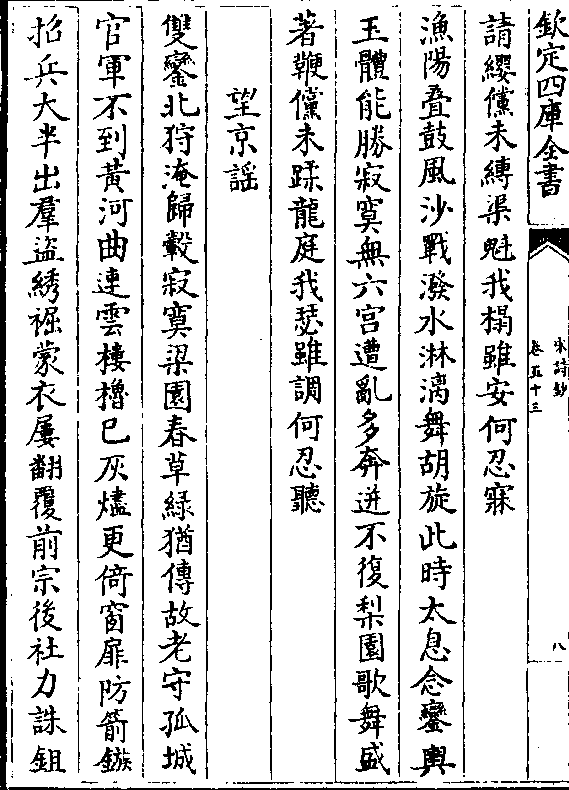 欽定四庫全書
宋詩鈔
卷五十三
八
請纓儻未縛渠魁我榻雖安何忍寐
漁陽疊鼓風沙戰潑水淋漓舞胡旋此時太息念鑾輿
玉體能勝寂寞無六宫遭亂多奔迸不復梨園歌舞盛
著鞭儻未蹂龍庭我瑟雖調何忍聽
望京謡
雙鑾北狩淹歸轂寂寞梁園春草緑猶傳故老守孤城
官軍不到黃河曲連雲樓櫓已灰燼更倚窗扉防箭鏃
招兵大半出羣盜綉裾蒙衣屢翻覆前宗後社力誅鉏